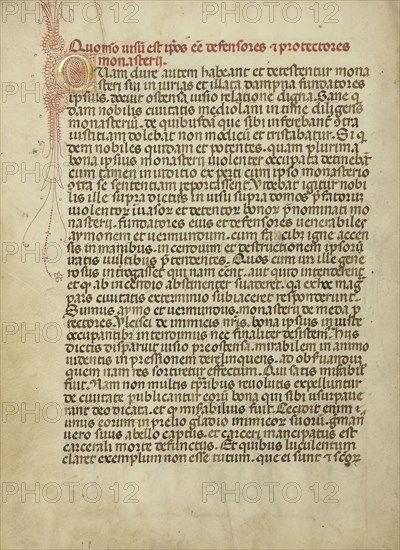 Quomodo visum est ipsos esse defensores et protectores
monasterij.
Quam dure autem habeant et detestentur mona
sterij sui iniurias et illata dampna fundatores
ipsius. docuit ostensa visio relatione digna. Sane q
dam nobilis civitatis mediolani in tine digmus
monasterij. de quibusdam que sibi inferebant
iustitiam dolebat non modicum et tristabatur. Si q
dem nobiles quidam et potentes. quam plurima
bona ipsius monasterij violenter occupata detinebat
cum tamen in iuditio ex parti cum ipso monasterio
contra se sententiam reportassent. Videbat igitur nobi
lis ille supra dictus in visu supra domos
violentorum et detentor bonorum prenominati mo
nasterij. fundatores eius et defensores venerabiles
aymonem et vermundum. cum igne accen
sis in manibus. incendium et destructionem ipsorum
vultibus pretendentes. Quos cum vir ille gene
rosus interrogasset qui nam essent. aut quid intenderent
et q ab incendio abstinenter suaderet. qa
pars civitatis exterminio subiaceret responderunt.
Sumus aymo et vermundus. monasterij de meda p
tectores. de inimicis nostris. bona ipsius iniuste
occupantibus nec finaliter desistem.
dictis disparuit visio preostensa. mirabilem in animo
videntis impressionem derelinquens. ad observandum
quem nam res sortiretur effectum. Qui satis mirabilis
fuit. Nam non multis temporibus revolutis expelluntur
de civitate publicantur eorum bona qui sibi usurpave
rant deo dicata. et quod mirabilius fuit. Cecidit enim
unus eorum in prelio gladio inimicorum suorum.
vero suus a bello captus. et carceri mancipatus est
carcerali morte defunctus. Et quibus luculentum
claret exemplum non esse tutum. que ei sunt et